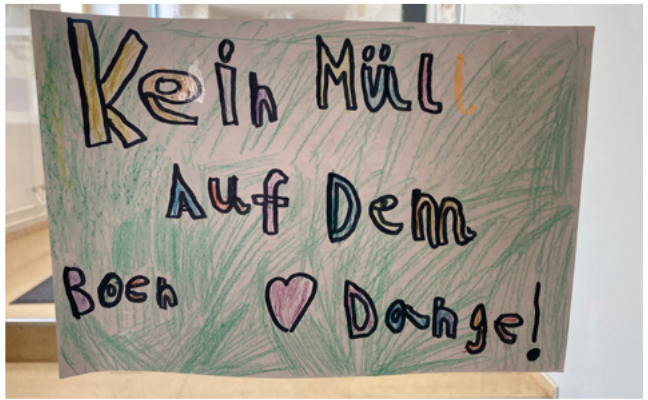 Kein Müll
Auf Dem
Boen ♥ Dange!